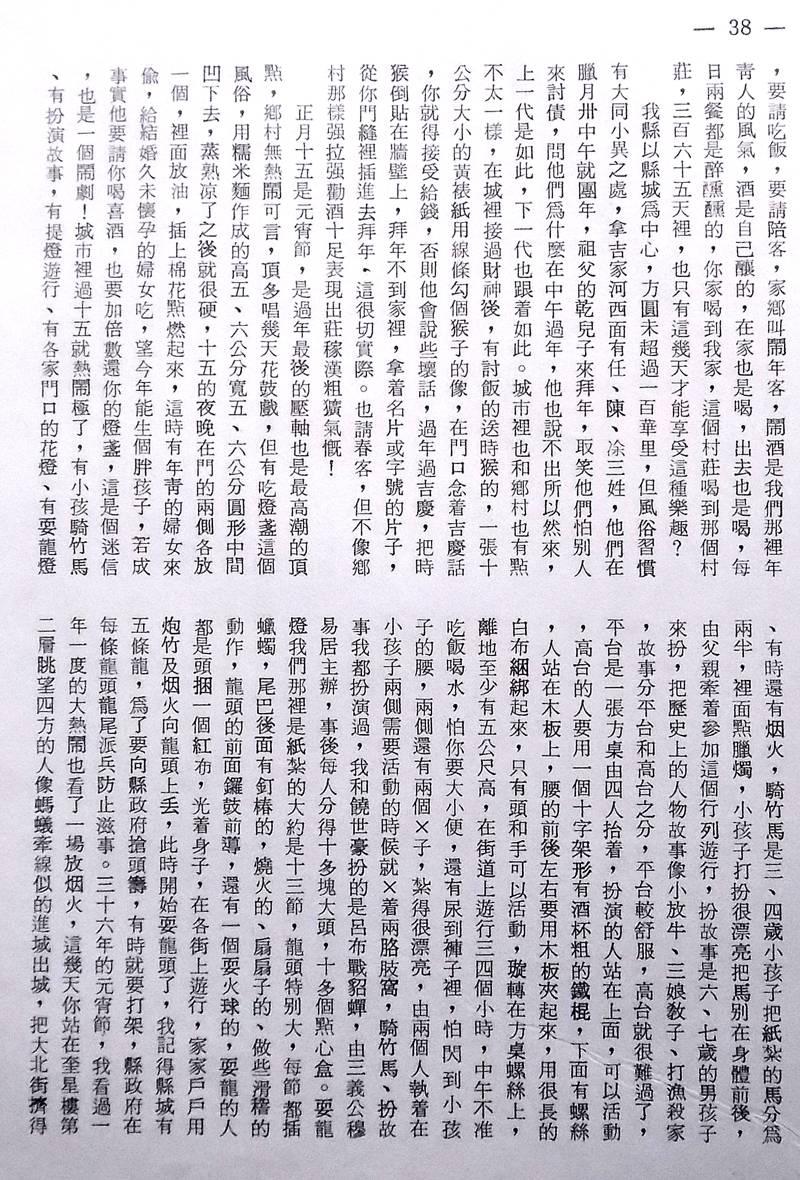 — 38 —
，要請吃飯，要請陪客，家鄉叫鬧年客，鬧酒是我們那裡年
靑人的風氣，酒是自己釀的，在家也是喝，出去也是喝，每
日兩餐都是醉醺醺的，你家喝到我家，這個村莊喝到那個村
莊，三百六十五天裡，也只有這幾天才能享受這種樂趣？
我縣以縣城爲中心，方圓未超過一百華里，但風俗習慣
有大同小異之處，拿吉家河西面有任、陳、凃三姓，他們在
臘月卅中午就團年，祖父的乾兒子來拜年，取笑他們怕別人
來討債，問他們爲什麽在中午過年，他也說不出所以然來，
上一代是如此，下一代也跟着如此。城市裡也和鄉村也有點
不太一樣，在城裡接過財神後，有討飯的送時猴的，一張十
公分大小的黃裱紙用線條勾個猴子的像，在門口念着吉慶話
，你就得接受給錢，否則他會說些壞話，過年過吉慶，把時
猴倒貼在牆壁上，拜年不到家裡，拿着名片或字號的片子，
從你門縫裡插進去拜年、這很切實際。也請春客，但不像鄉
村那樣强拉强勸酒十足表現出莊稼漢粗獷氣慨！
正月十五是元宵節，是過年最後的壓軸也是最高潮的頂
點，鄉村無熱鬧可言，頂多唱幾天花鼓戲，但有吃燈盞這個
風俗，用糯米麵作成的高五、六公分寬五、六公分圓形中間
凹下去，蒸熟凉了之後就很硬，十五的夜晚在門的兩側各放
一個，裡面放油，插上棉花點燃起來，這時有年靑的婦女來
偷，給結婚久未懷孕的婦女吃，望今年能生個胖孩子，若成
事實他要請你喝喜酒，也要加倍數還你的燈盞，這是個迷信
，也是一個鬧劇！城市裡過十五就熱鬧極了，有小孩騎竹馬
、有扮演故事，有提燈遊行、有各家門口的花燈、有耍龍燈
、有時還有烟火，騎竹馬是三、四歲小孩子把紙紮的馬分爲
兩半，裡面點臘燭，小孩子打扮很漂亮把馬別在身體前後，
由父親牽着參加這個行列遊行，扮故事是六、七歲的男孩子
來扮，把歷史上的人物故事像小放牛、三娘敎子、打漁殺家
，故事分平台和高台之分，平台較舒服，高台就很難過了，
平台是一張方桌由四人抬着，扮演的人站在上面，可以活動
，高台的人要用一個十字架形有酒杯粗的鐵棍，下面有螺絲
，人站在木板上，腰的前後左右要用木板夾起來，用很長的
白布綑綁起來，只有頭和手可以活動，璇轉在方桌螺絲上，
離地至少有五公尺高，在街道上遊行三四個小時，中午不准
吃飯喝水，怕你要大小便，還有尿到褲子裡，怕閃到小孩
子的腰，兩側還有兩個×子，紮得很漂亮，由兩個人執着在
小孩子兩側需要活動的時候就×着兩胳肢窩，騎竹馬、扮故
事我都扮演過，我和饒世豪扮的是呂布戰貂蟬，由三義公穆
易居主辦，事後每人分得十多塊大頭，十多個點心盒。耍龍
燈我們那裡是紙紮的大約是十三節，龍頭特別大，每節都插
蠟蠋，尾巴後面有釘樁的，燒火的、扇扇子的、做些滑稽的
動作，龍頭的前面鑼鼓前導，還有一個耍火球的，耍龍的人
都是頭捆一個紅布，光着身子，在各街上遊行，家家戶戶用
炮竹及烟火向龍頭上丢，此時開始耍龍頭了，我記得縣城有
五條龍，爲了要向縣政府搶頭籌，有時就要打架，縣政府在
每條龍頭龍尾派兵防止滋事。三十六年的元宵節，我看過一
年一度的大熱鬧也看了一場放烟火，這幾天你站在奎星樓第
二層眺望四方的人像螞蟻牽線似的進城出城，把大北街擠得